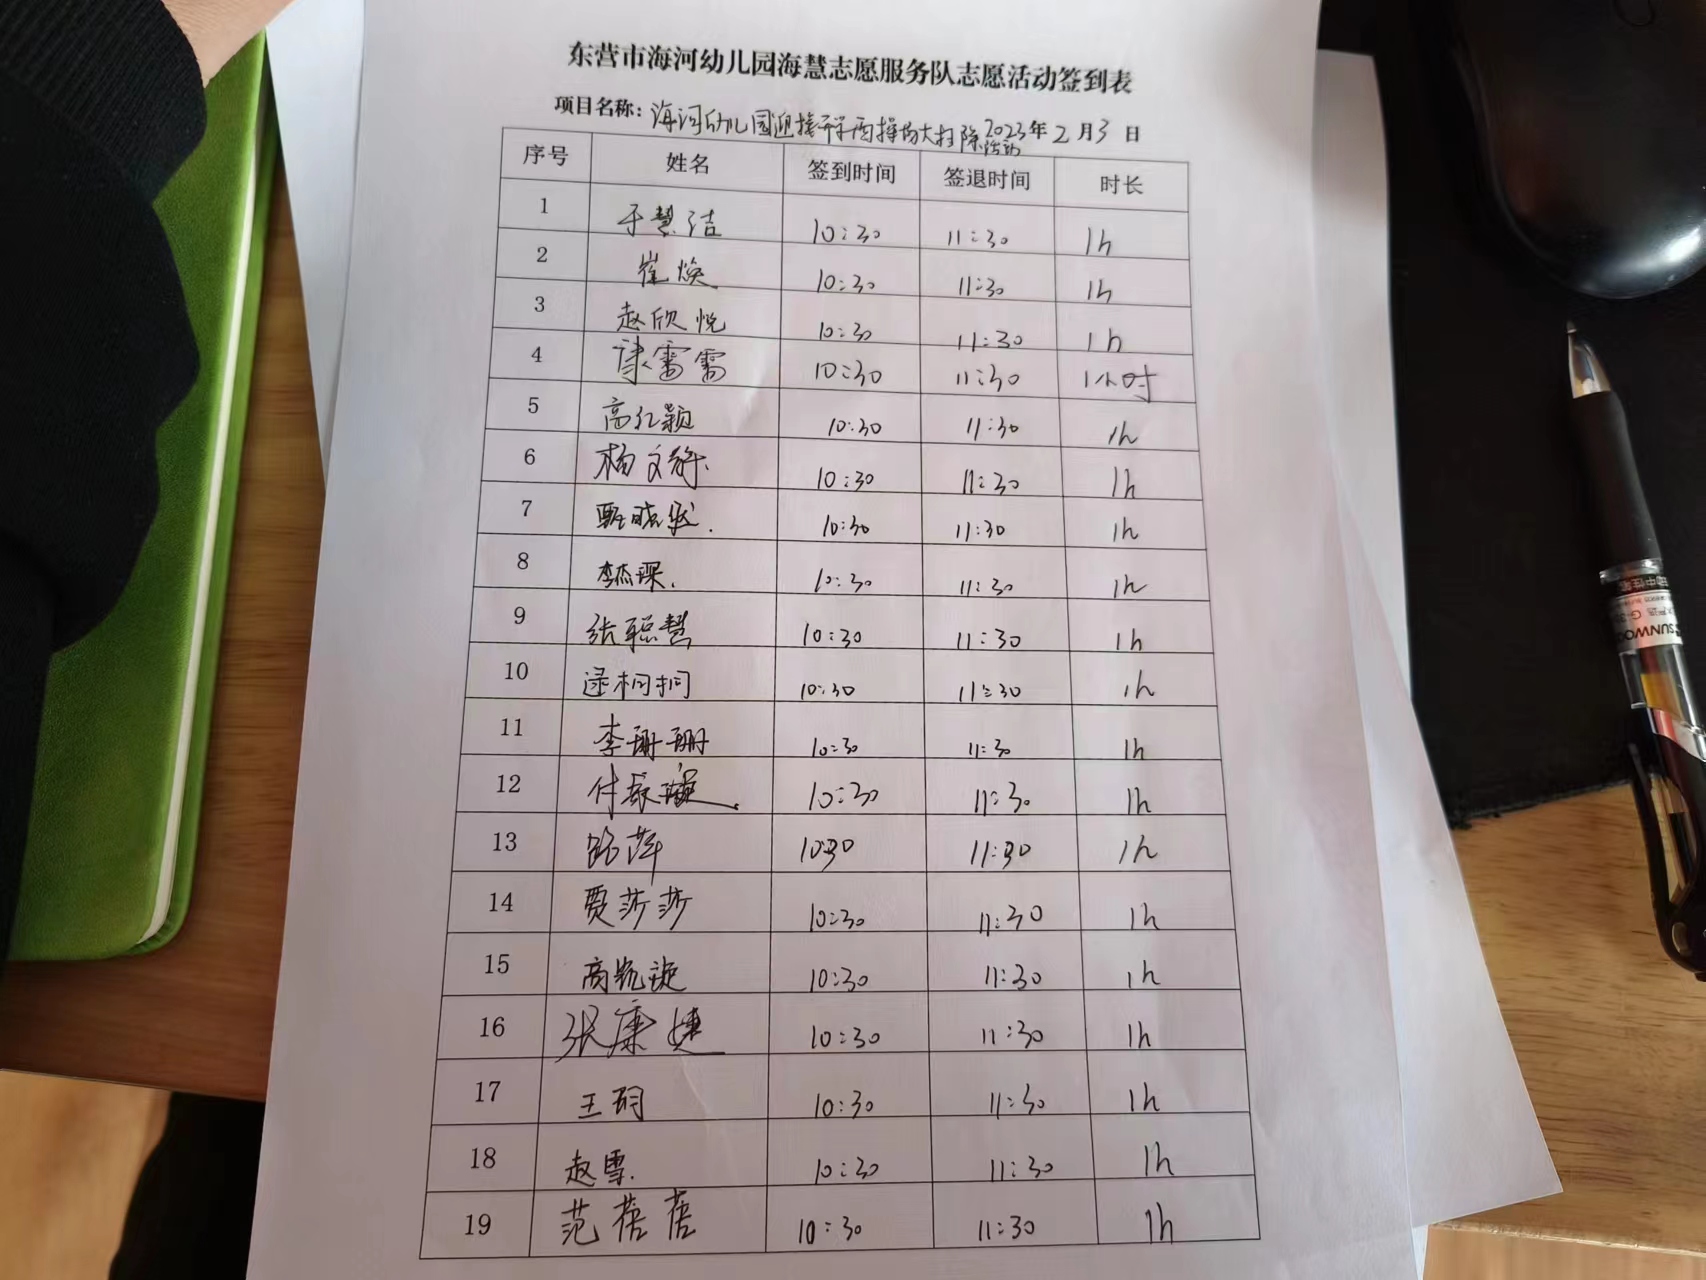 东营市海河幼儿园海慧志愿服务队志愿活动签到表
项目名称：海河幼儿园迎接开学西操场大扫除活动 2023年2月3日
序号 姓名 签到时间 签退时间 时长
1 于慧洁 10:30 11:30 1h
2 崔焕 10:30 11:30 1h
3 赵欣悦 10:30 11:30 1h
4 雷雷 10:30 11:30 1小时
5 高红颖 10:30 11:30 1h
6 杨文静 10:30 11:30 1h
7 甄晓 10:30 11:30 1h
8 李杰琛 10:30 11:30 1h
9 张聪慧 10:30 11:30 1h
10 逯桐桐 10:30 11:30 1h
11 李珊珊 10:30 11:30 1h
12 付振璇 10:30 11:30 1h
13 萍 10:30 11:30 1h
14 贾莎莎 10:30 11:30 1h
15 高凯旋 10:30 11:30 1h
16 张康婕 10:30 11:30 1h
17 王珂 10:30 11:30 1h
18 赵雪 10:30 11:30 1h
19 范蓓蓓 10:30 11:30 1h
SUNWOO